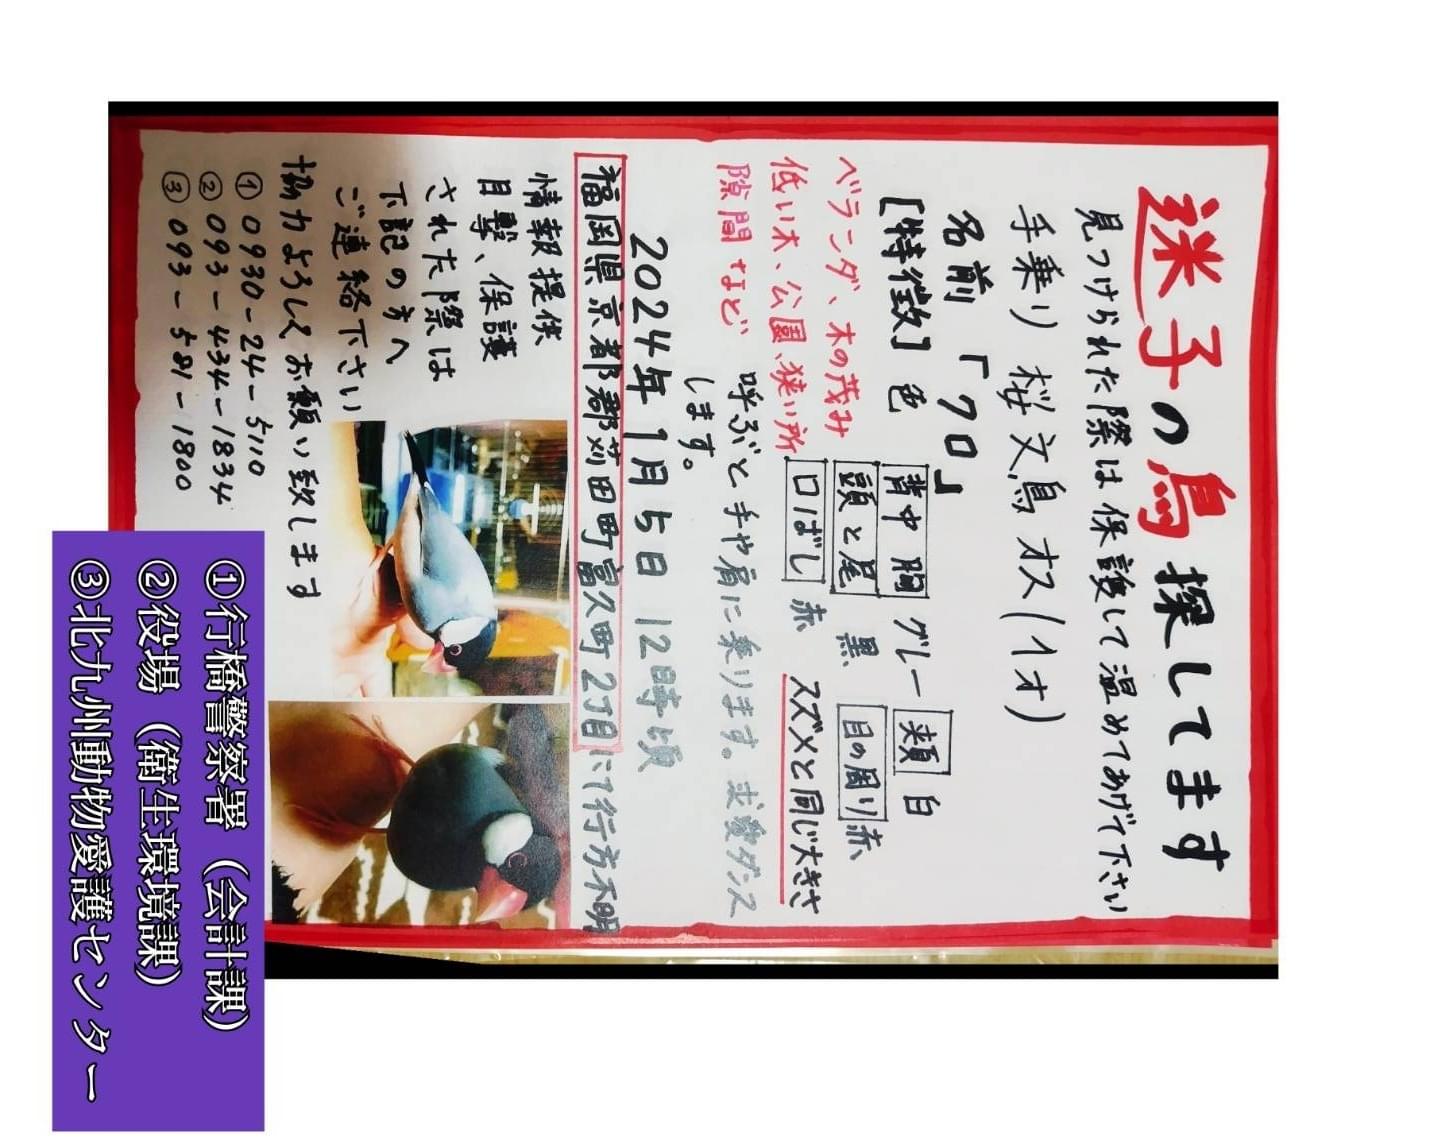 迷子の鳥 探してます
見つけられた際は保護して温めてあげて下さい
手乗り 桜文鳥 オス(1才)
名前 「クロ」
[特徴] 色
背中 胸 グレー 頬 白
頭と尾 黒 目の周り 赤
口ばし 赤 スズメと同じ大きさ
ベランダ、木の茂み
低い木、公園、狭い所
隙間 など
呼ぶと手や肩に乗ります。求愛ダンス
します。
2024年1月5日 12時頃
福岡県京都郡苅田町富久町2丁目にて行方不明
情報提供
目撃、保護
された際は
下記の方へ
ご連絡下さい
協力よろしくお願い致します
① 0930-24-5110
② 093-434-1834
③ 093-581-1800
①行橋警察署（会計課）
②役場（衛生環境課）
③北九州動物愛護センター